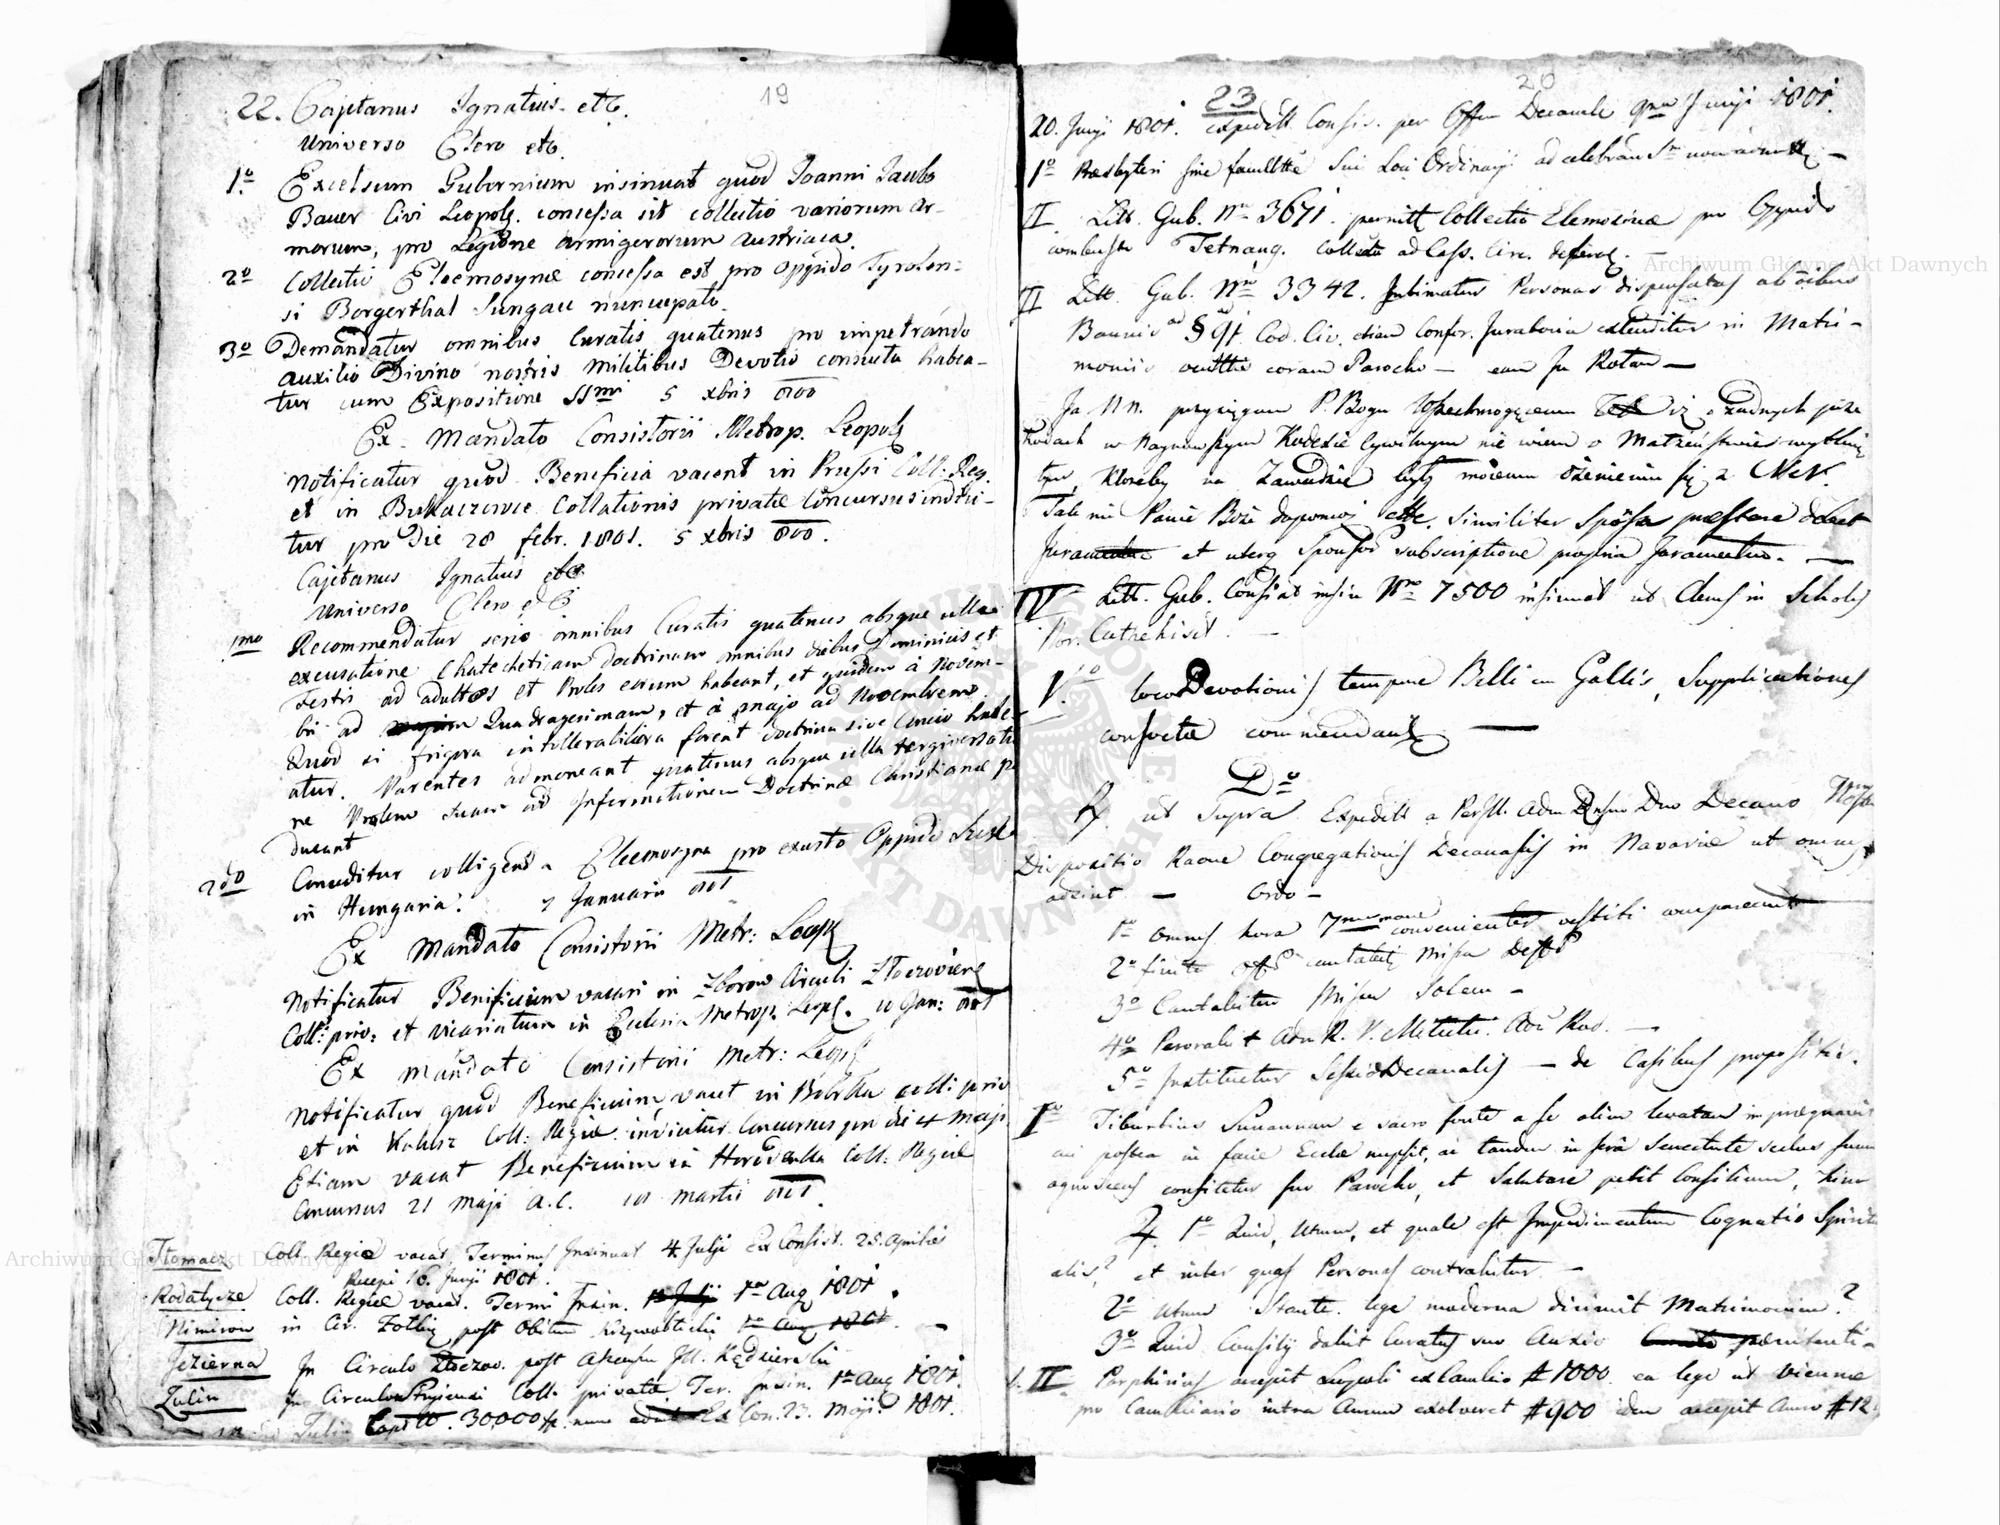 19
22. Cajetanus Ignatius etc.
Universo Clero etc.
1º Excelsum Gubernium insinuat quod Joanni Jacobo
Bauer Civi Leopol. concessa sit collectio variorum ar-
morum, pro Legione armigerorum Austriaca.
2º Collectio Eleemosynæ concessa est pro oppido Tyrolen-
si Borgerthal Sungau nuncupato.
3º Demandatur omnibus Curatis quatenus pro impetrando
auxilio Divino nostris Militibus Devotio consueta habea-
tur cum Expositione SSmi 5 xbris 800
Ex Mandato Consistorii Metrop. Leopol
Notificatur quod Beneficia vacent in Prussi Coll. Reg.
et in Bukaczowce Collationis privatæ Concursus indici-
tur pro Die 28 febr. 1801. 5 xbris 800.
Cajetanus Ignatius etc
Universo Clero etc
1mo Recommendatur serio omnibus Curatis quatenus absque ulla
excusatione Chatecheticam doctrinam omnibus diebus Dominicis et
Festis ad adultos et Proles eorum habeant, et quidem à Novem-
bri ad Quadragesimam, et à majo ad Novembrem.
Quod si frigora intollerabiliora forent doctrina sive Concio habe-
atur. Parentes admoneant quatenus absque ulla tergiversatio
ne Prolem suam ad Informationem Doctrinæ Christianæ p
ducant
2do Conceditur colligenda Eleemosyna pro exusto Oppido
in Hungaria. 7 Januarii 801
Ex Mandato Consistorii Metr: Leopol
Notificatur Beneficium vacari in Zborow Circuli Zloczoviens
Coll: priv: et vicariatum in Ecclesia Metrop. Leopol. 10 Jan: 801
Ex Mandato Consistorii Metr: Leopol
Notificatur quod Beneficium vacet in Bobrka colli: priv
et in Kalusz Coll: Regiæ. indicitur Concursus pro die 4 Maji
Etiam vacat Beneficium in Horodenka Coll: Regiæ
Concursus 21 Maji a.c. 10 Martii 801.
Tłomacz Coll. Regiæ vacat Terminus Insinuat 4 Julji Ex Consist. 25. Aprilis
Recepi 16. Junji 1801.
Rodatycze Coll. Regiæ vacat. Termi Insin. 1a Julji 1ma Aug 1801.
Nimirow in Cir. Zolkię post Obitum 1a Aug 1801.
Jezierna In Circulo Złoczov. post
Zulin In Circulo Coll. privatæ Ter. Insin. 1ma Aug 1801.
30000 fl. nunc Ex Con. 23. Maji 1801.
20
23
20. Junji 1801. expedit. Consis. per Offm Decanale 9na Junji 1801.
1º Presbyteri sine facultte Sui Loci Ordinarji ad celebran
II Litt. Gub. Nro 3671. permitt Collectio Elemosinæ pro Oppido
combusto Tetnang. Collecta ad Cass. Circ.
II Litt. Gub. Nro 3342. Intimatur Personas dispensatas ab oibus
Bannis ad § 91. Cod. Civ. etiam Confor. Juratoria extenditur in Matri-
monii coram Parocho — eam In Rotam —
Ja NN. przysięgam P. Bogu Wszechmogącemu iż o żadnych prze
szkodach w Kodexie Cywilnym nie wiem o Matzeństwie
tym, któreby na Zawadzie były mojemu ożenieniu się z N N.
Tak mi Panie Boże dopomoż etc. Similiter Sponsa præstare debet
Juramentum et uterq Sponsor subscriptione propria Juramentum. —
IV Litt. Gub. Nro 7500 insinuat ut Clerus in Scholis
Nor. Catechiset. —
Vto Devotionis tempore Belli cum Gallis, Supplicationes
consuetæ commendant —
Do
ut Supra Expedit a Decano
Dispositio Congregationis Decanalis in Navaria ut omnes
adsint — Ordo —
1º Omnes hora 7ma mane convenienter vestiti compareant
2º finito Offo cantabit Missa Deff
3º Cantabitur Missa Solem —
4º Perorabit Adm R. —
5º Instituetur Sessio Decanalis — de Casibus propositis.
I Tiburtius Susannam e sacro fonte a se olim levatam impregnavit
cui postea in facie Ecclæ nupsit, ac tandem in sera Senectute scelus suum
agnoscens confitetur suo Parocho, et Salutare petit Consilium, hinc
1º Quid, Utrum, et quale est Impedimentum Cognatio Spiritu
alis? et inter quas Personas contrahitur —
2º Utrum Stante lege moderna dirimit Matrimonium?
3º Quid Consilij dabit Curatus suo pænitenti-
II Porphirius accepit Leopoli ex Cambio # 1000. ea lege ut Viennæ
pro Cambiario intra Annum exolveret # 900 idem accepit # 12